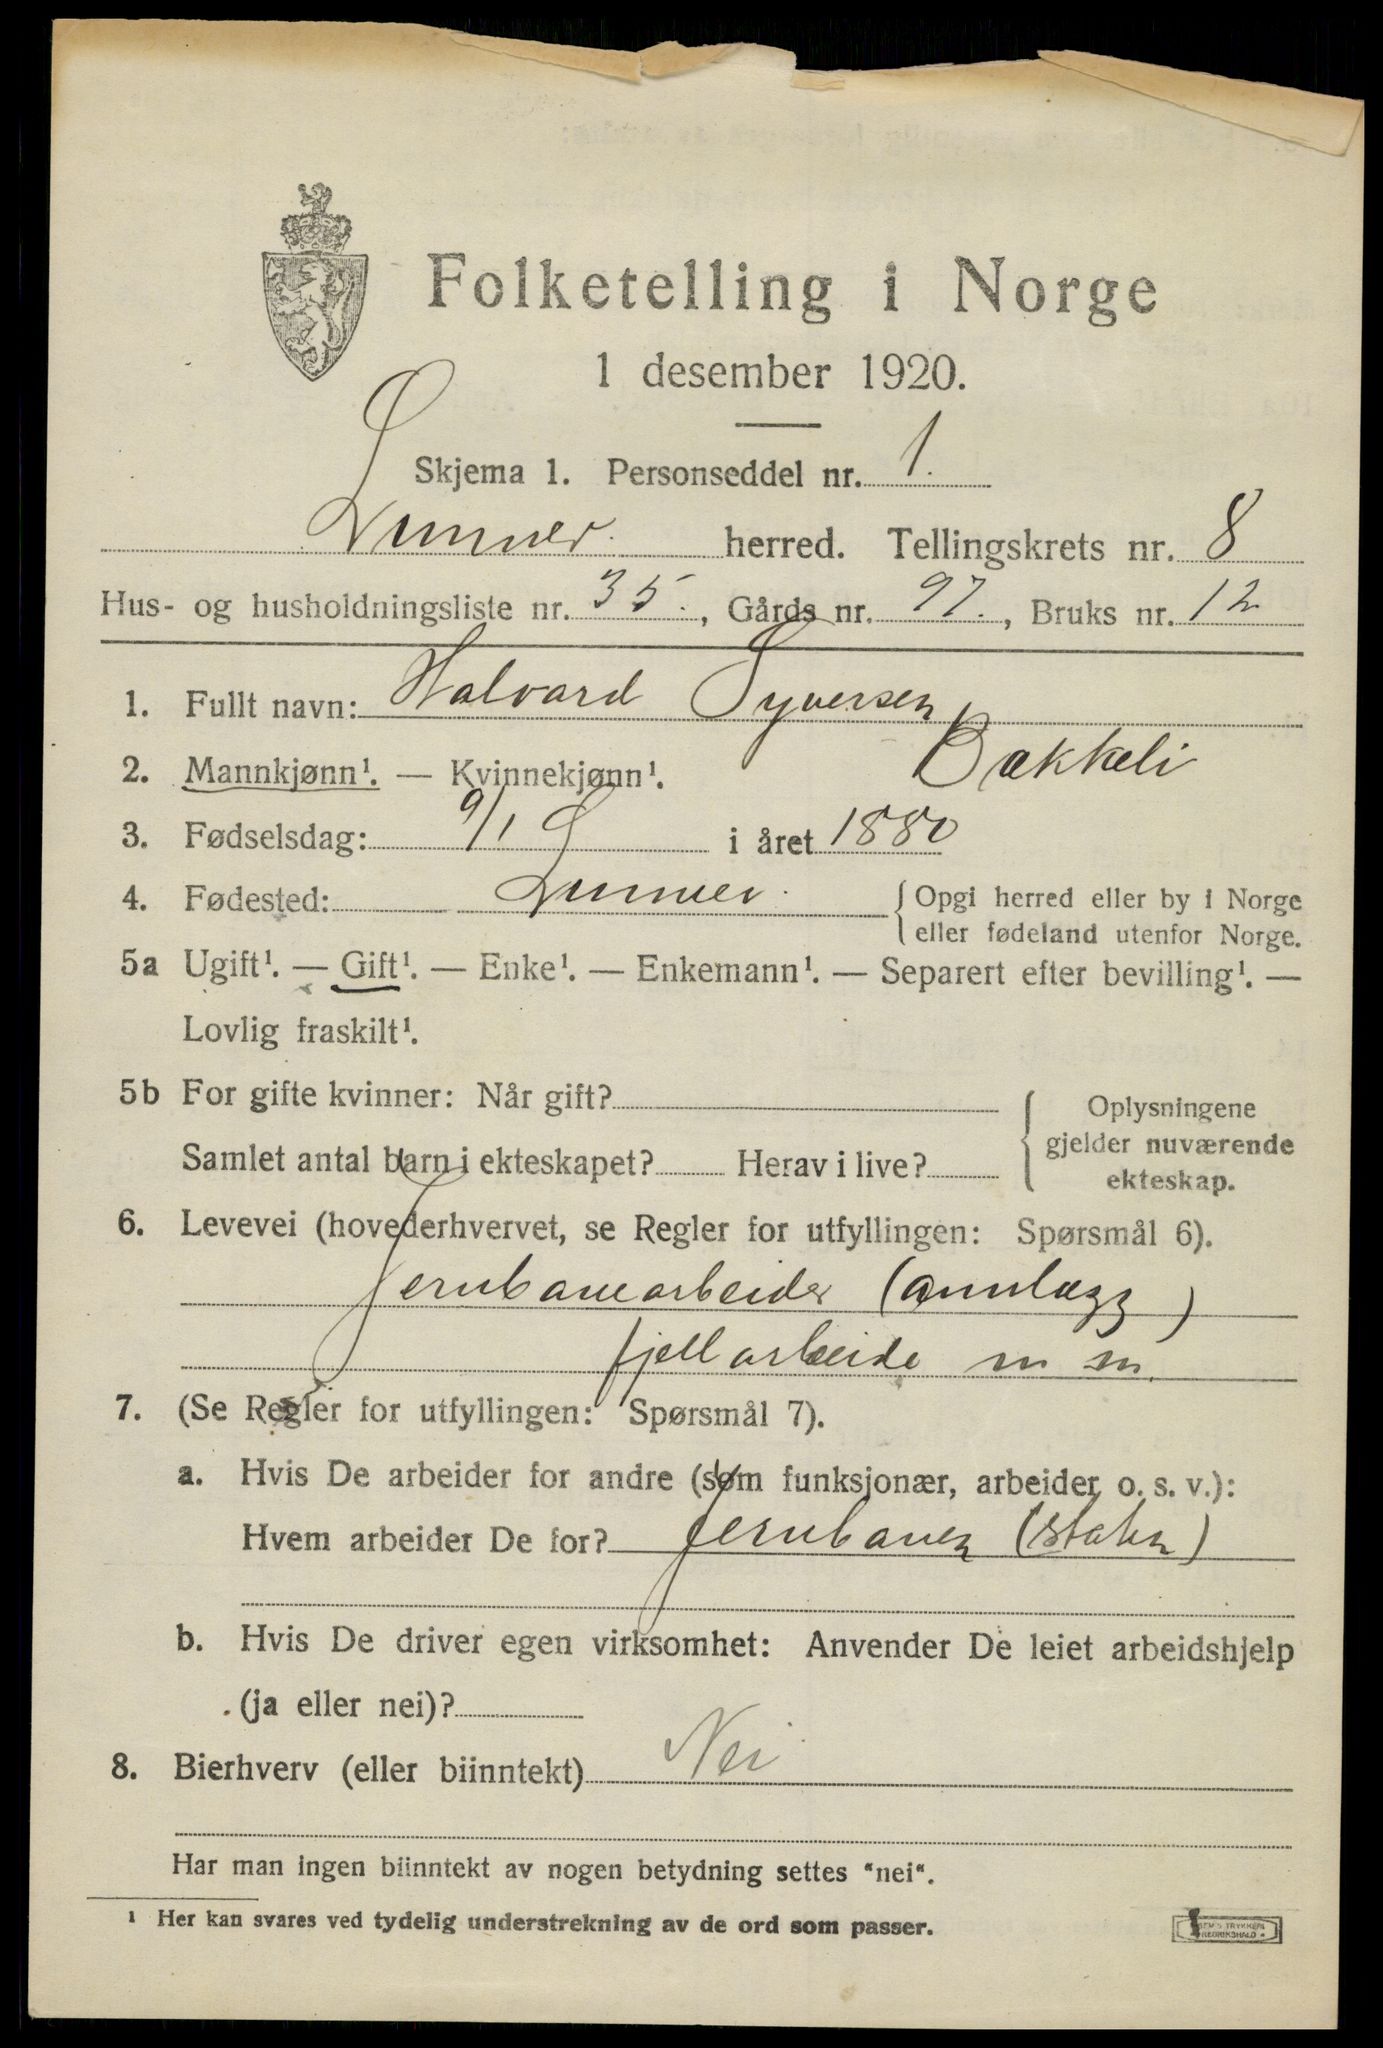 Folketelling i Norge
1 desember 1920.
Skjema 1. Personseddel nr. 1.
Lunner. herred. Tellingskrets nr. 8
Hus- og husholdningsliste nr. 35., Gårds nr. 97., Bruks nr. 12
1. Fullt navn: Halvard Syversen
Bakkeli
2. Mannkjønn¹. — Kvinnekjønn¹.
3. Fødselsdag: 9/1 i året 1880
4. Fødested: Lunner. { Opgi herred eller by i Norge
eller fødeland utenfor Norge.
5a Ugift¹. — Gift¹. — Enke¹. — Enkemann¹. — Separert efter bevilling¹. —
Lovlig fraskilt¹.
5b For gifte kvinner: Når gift?
Samlet antal barn i ekteskapet? Herav i live?
{ Oplysningene
gjelder nuværende
ekteskap.
6. Levevei (hovederhvervet, se Regler for utfyllingen: Spørsmål 6).
Jernbanearbeider (annlægg)
fjellarbeide m m.
7. (Se Regler for utfyllingen: Spørsmål 7).
a. Hvis De arbeider for andre (som funksjonær, arbeider o. s. v.):
Hvem arbeider De for? Jernbanen (staten)
b. Hvis De driver egen virksomhet: Anvender De leiet arbeidshjelp
(ja eller nei)?
8. Bierhverv (eller biinntekt) Nei
Har man ingen biinntekt av nogen betydning settes "nei".
¹ Her kan svares ved tydelig understrekning av de ord som passer.